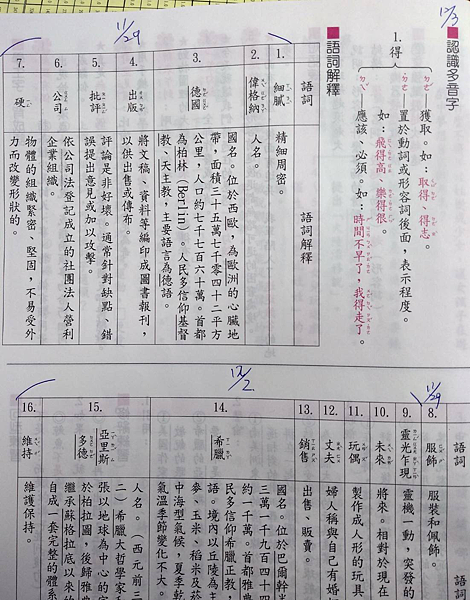 12/3
認識多音字
1. 得
ㄉㄜˊ 獲取。如：取得、得志。
ㄉㄜ˙ 置於動詞或形容詞後面，表示程度。
如：飛得高、樂得很。
ㄉㄟˇ 應該、必須。如：時間不早了，我得走了。
語詞解釋
11/29
語詞
語詞解釋
1. 細膩
精細周密。
2. 偉格納
人名。
3. 德國
國名。位於西歐，為歐洲的心臟地
帶，面積三十五萬七千零四十二平方
公里，人口約七千七百六十萬。首都
為柏林（Berlin）。人民多信仰基督
教、天主教，主要語言為德語。
4. 出版
將文稿、資料等編印成圖書報刊，
以供出售或傳布。
5. 批評
評論是非好壞。通常針對缺點、錯
誤提出意見或加以攻擊。
6. 公司
依公司法登記成立的社團法人營利
企業組織。
7. 硬
物體的組織緊密、堅固，不易受外
力而改變形狀的。
11/29
12/2
語詞
語詞
8. 服飾
服裝和佩飾。
9. 靈光乍現
靈機一動，突發的
10. 未來
將來。相對於現在
11. 玩偶
製作成人形的玩具
12. 丈夫
婦人稱與自己有婚
13. 銷售
出售，販賣。
14. 希臘
國名。位於巴爾幹半
三萬一千九百四十四
約一千萬。首都雅典
民多信仰希臘正教，
語。境內以丘陵為主
麥、玉米、稻米及菸
中海型氣候，夏季乾
氣溫季節變化不大。
15. 亞里斯
多德
人名。（西元前三
二）希臘大哲學家，
張以地球為中心的宇
於柏拉圖，後歸雅典
繼承蘇格拉底以來的
自成一套完整的體系
16. 維持
維護保持。